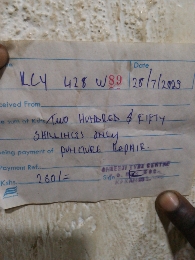 No.
Date
KCY 428 W 89 28/7/2023
Received From
the sum of Kshs TWO HUNDRED & FIFTY
SHILLINGS ONLY
being payment of PUNCTURE REPAIR
Payment Ref.
Kshs. 250/=
TYRE CENTRE